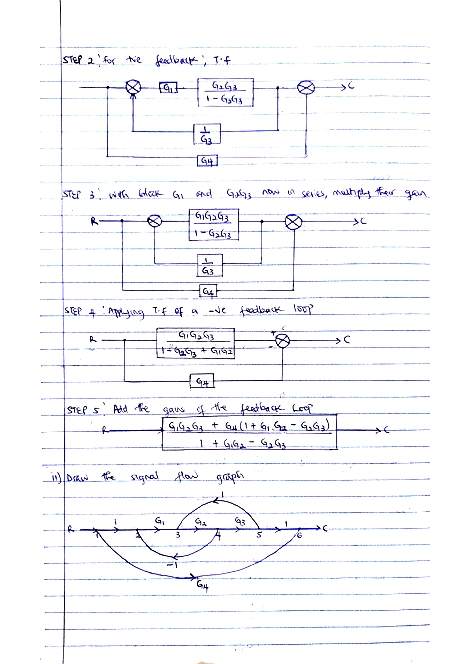 STEP 2: for +ve feedback, T.f
G1
G2G3
1 - G2G3
C
1
G3
G4
STEP 3: with block G1 and G2G3 now in series, multiply their gain
R
G1G2G3
1 - G2G3
C
1
G3
G4
STEP 4: Applying T.f of a -ve feedback loop
R
G1G2G3
1 - G2G3 + G1G2
+
-
C
G4
STEP 5: Add the gains of the feedback Loop
R
G1G2G3 + G4(1 + G1.G2 - G2G3)
1 + G1G2 - G2G3
C
ii) Draw the signal flow graph
1
R 1 G1 G2 G3 1 C
1 2 3 4 5 6
-1
G4